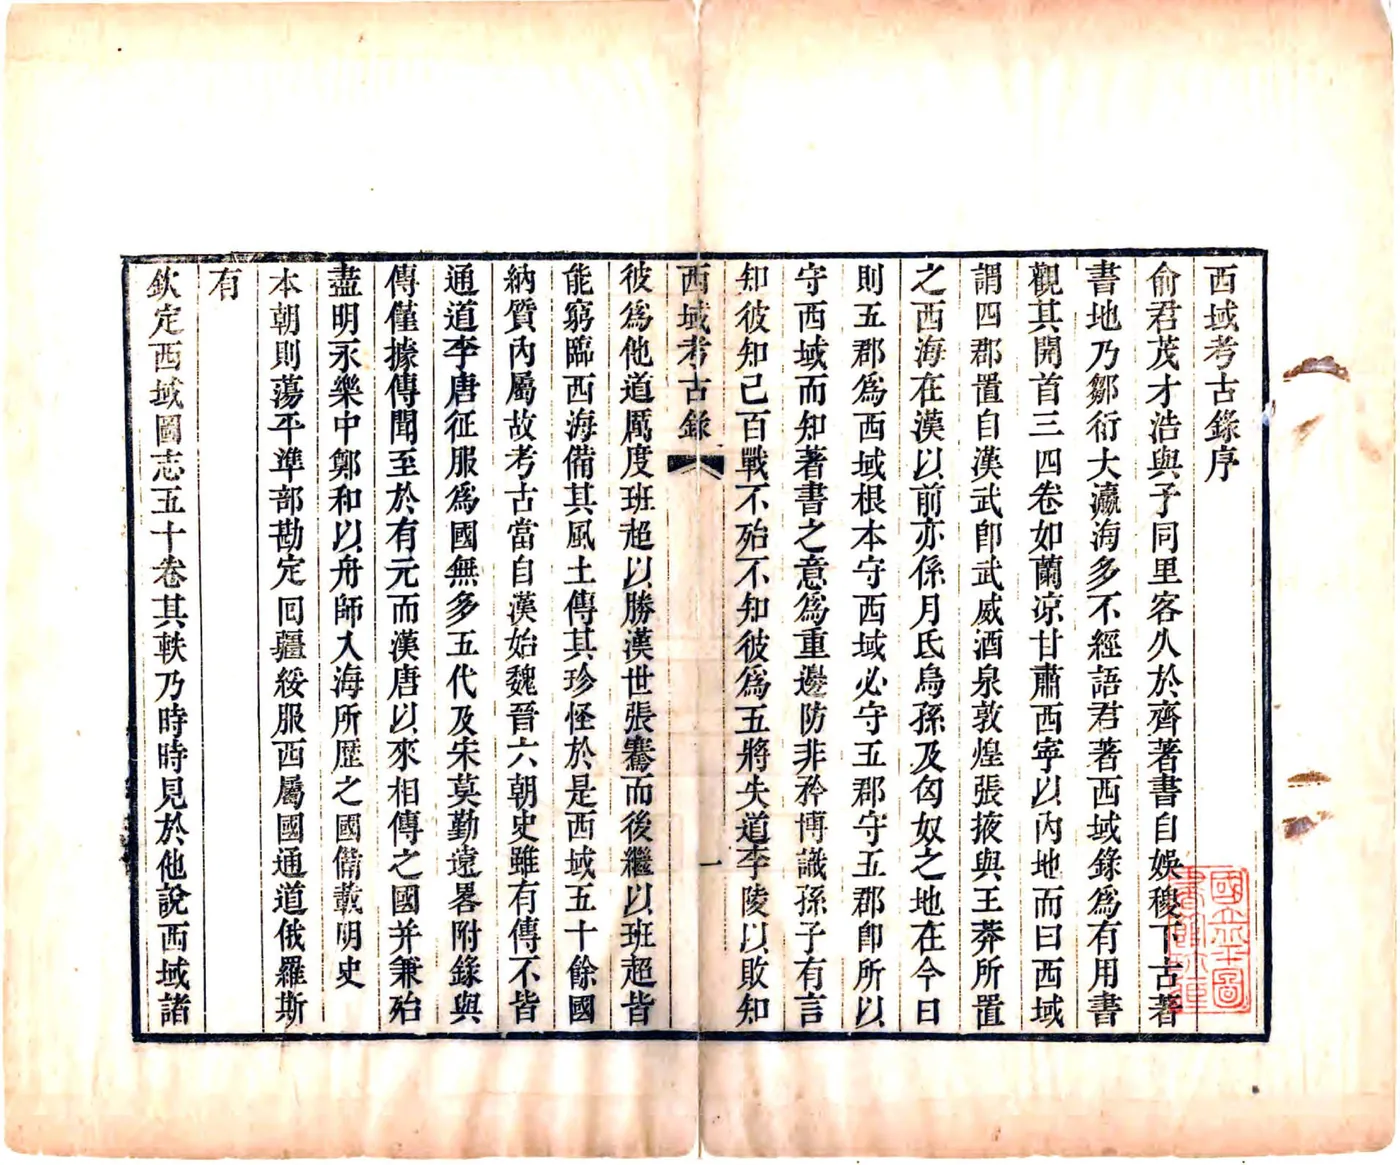 西域考古錄序
俞君茂才浩與予同里客久於齊著書自娛稷下古著
書地乃鄒衍大瀛海多不經語君著西域錄爲有用書
觀其開首三四卷如蘭凉甘肅西寧以內地而曰西域
謂四郡置自漢武卽武威酒泉敦煌張掖與王莽所置
之西海在漢以前亦係月氐烏孫及匈奴之地在今曰
則五郡爲西域根本守西域必守五郡守五郡卽所以
守西域而知著書之意爲重邊防非矜博識孫子有言
知彼知己百戰不殆不知彼爲五將失道李陵以敗知
西域考古錄
一
彼爲他道厲度班超以勝漢世張騫而後繼以班超皆
能窮臨西海備其風土傳其珍怪於是西域五十餘國
納質內屬故考古當自漢始魏晉六朝史雖有傳不皆
通道李唐征服爲國無多五代及宋莫勤遠畧附錄與
傳僅據傳聞至於有元而漢唐以來相傳之國并兼殆
盡明永樂中鄭和以舟師入海所歷之國備載明史
本朝則蕩平準部勘定回疆綏服西屬國通道俄羅斯
有
欽定西域圖志五十卷其軼乃時時見於他說西域諸
國立
圖